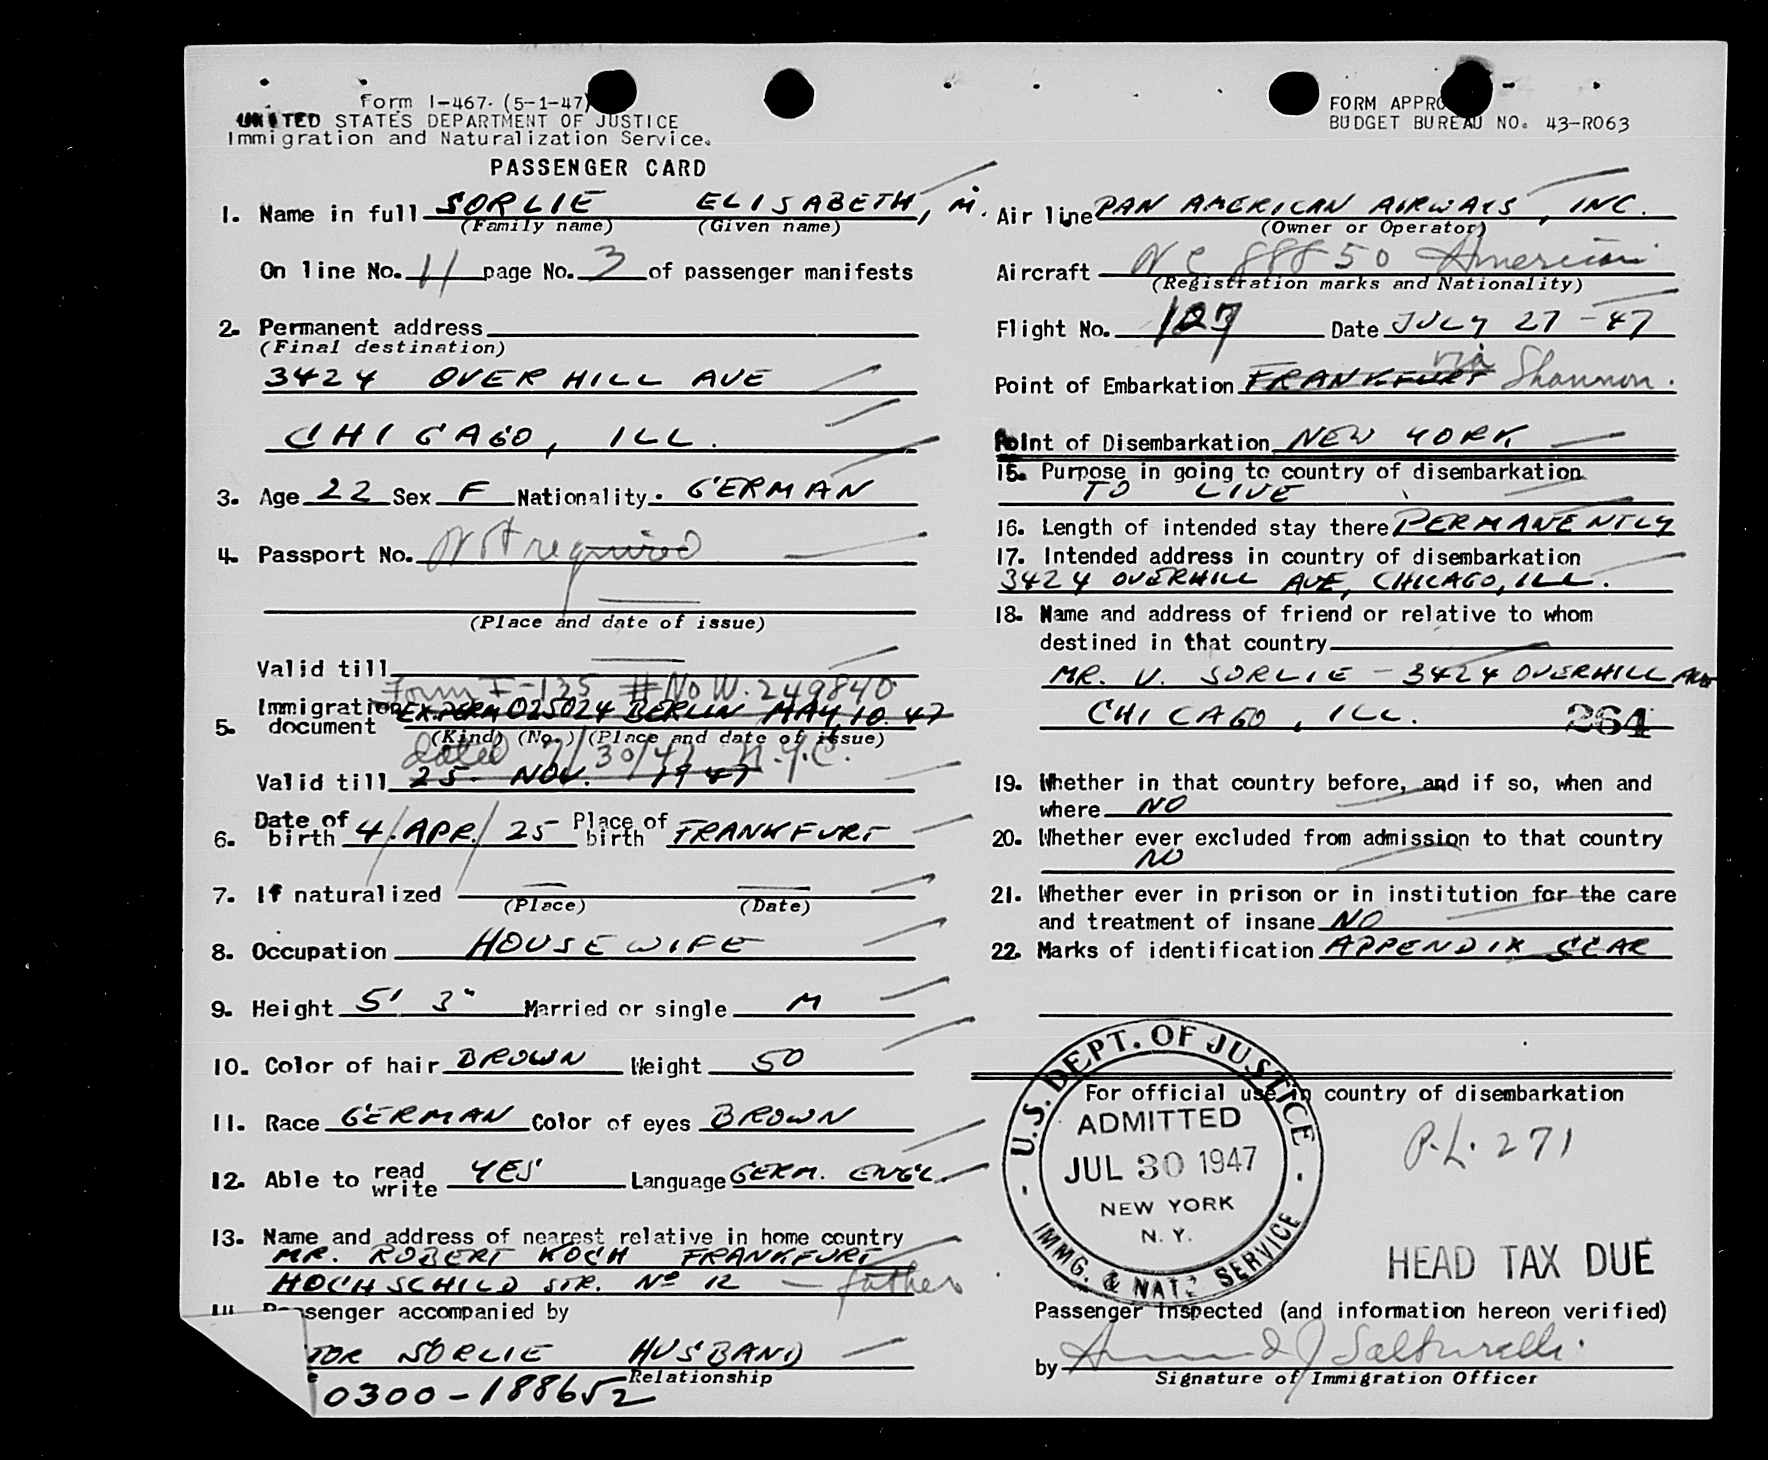 Form I-467. (5-1-47)
UNITED STATES DEPARTMENT OF JUSTICE
Immigration and Naturalization Service.
PASSENGER CARD
FORM APPRO
BUDGET BUREAU NO. 43-R063
1. Name in full SORLIE ELISABETH, M.
(Family name) (Given name)
On line No. 11 page No. 3 of passenger manifests
2. Permanent address
(Final destination)
3424 OVERHILL AVE
CHICAGO, ILL.
3. Age 22 Sex F Nationality. GERMAN
4. Passport No. Not required
(Place and date of issue)
Valid till
Form I-135 #No W. 249840
5. Immigration document EX.PERM 025024 BERLIN MAY, 10. 47
(Kind) (No.) (Place and date of issue)
dated 7/30/47 N.Y.C.
Valid till 25. NOV. 1947
6. Date of birth 4/.APR./25 Place of birth FRANKFURT
7. If naturalized
(Place) (Date)
8. Occupation HOUSEWIFE
9. Height 5' 3" Married or single M
10. Color of hair BROWN Weight 50
11. Race GERMAN Color of eyes BROWN
12. Able to read write YES Language GERM. ENGL.
13. Name and address of nearest relative in home country
MR. ROBERT KOCH FRANKFURT
HOCHSCHILD STR. No 12 — father
14 Passenger accompanied by
TOR SORLIE HUSBAND
Relationship
0300-188652
Air line PAN AMERICAN AIRWAYS, INC.
(Owner or Operator)
Aircraft NC 88850 American
(Registration marks and Nationality)
Flight No. 127 Date JULY 27-47
Point of Embarkation FRANKFURT via Shannon.
Point of Disembarkation NEW YORK
15. Purpose in going to country of disembarkation
TO LIVE
16. Length of intended stay there PERMANENTLY
17. Intended address in country of disembarkation
3424 OVERHILL AVE, CHICAGO, ILL.
18. Name and address of friend or relative to whom
destined in that country
MR. V. SORLIE - 3424 OVERHILL AVE
CHICAGO, ILL. 264
19. Whether in that country before, and if so, when and
where NO
20. Whether ever excluded from admission to that country
NO
21. Whether ever in prison or in institution for the care
and treatment of insane NO
22. Marks of identification APPENDIX SCAR
For official use in country of disembarkation
U.S. DEPT. OF JUSTICE
ADMITTED
JUL 30 1947
NEW YORK
N. Y.
IMMG. & NAT. SERVICE
P.L. 271
HEAD TAX DUE
Passenger inspected (and information hereon verified)
by
Signature of Immigration Officer